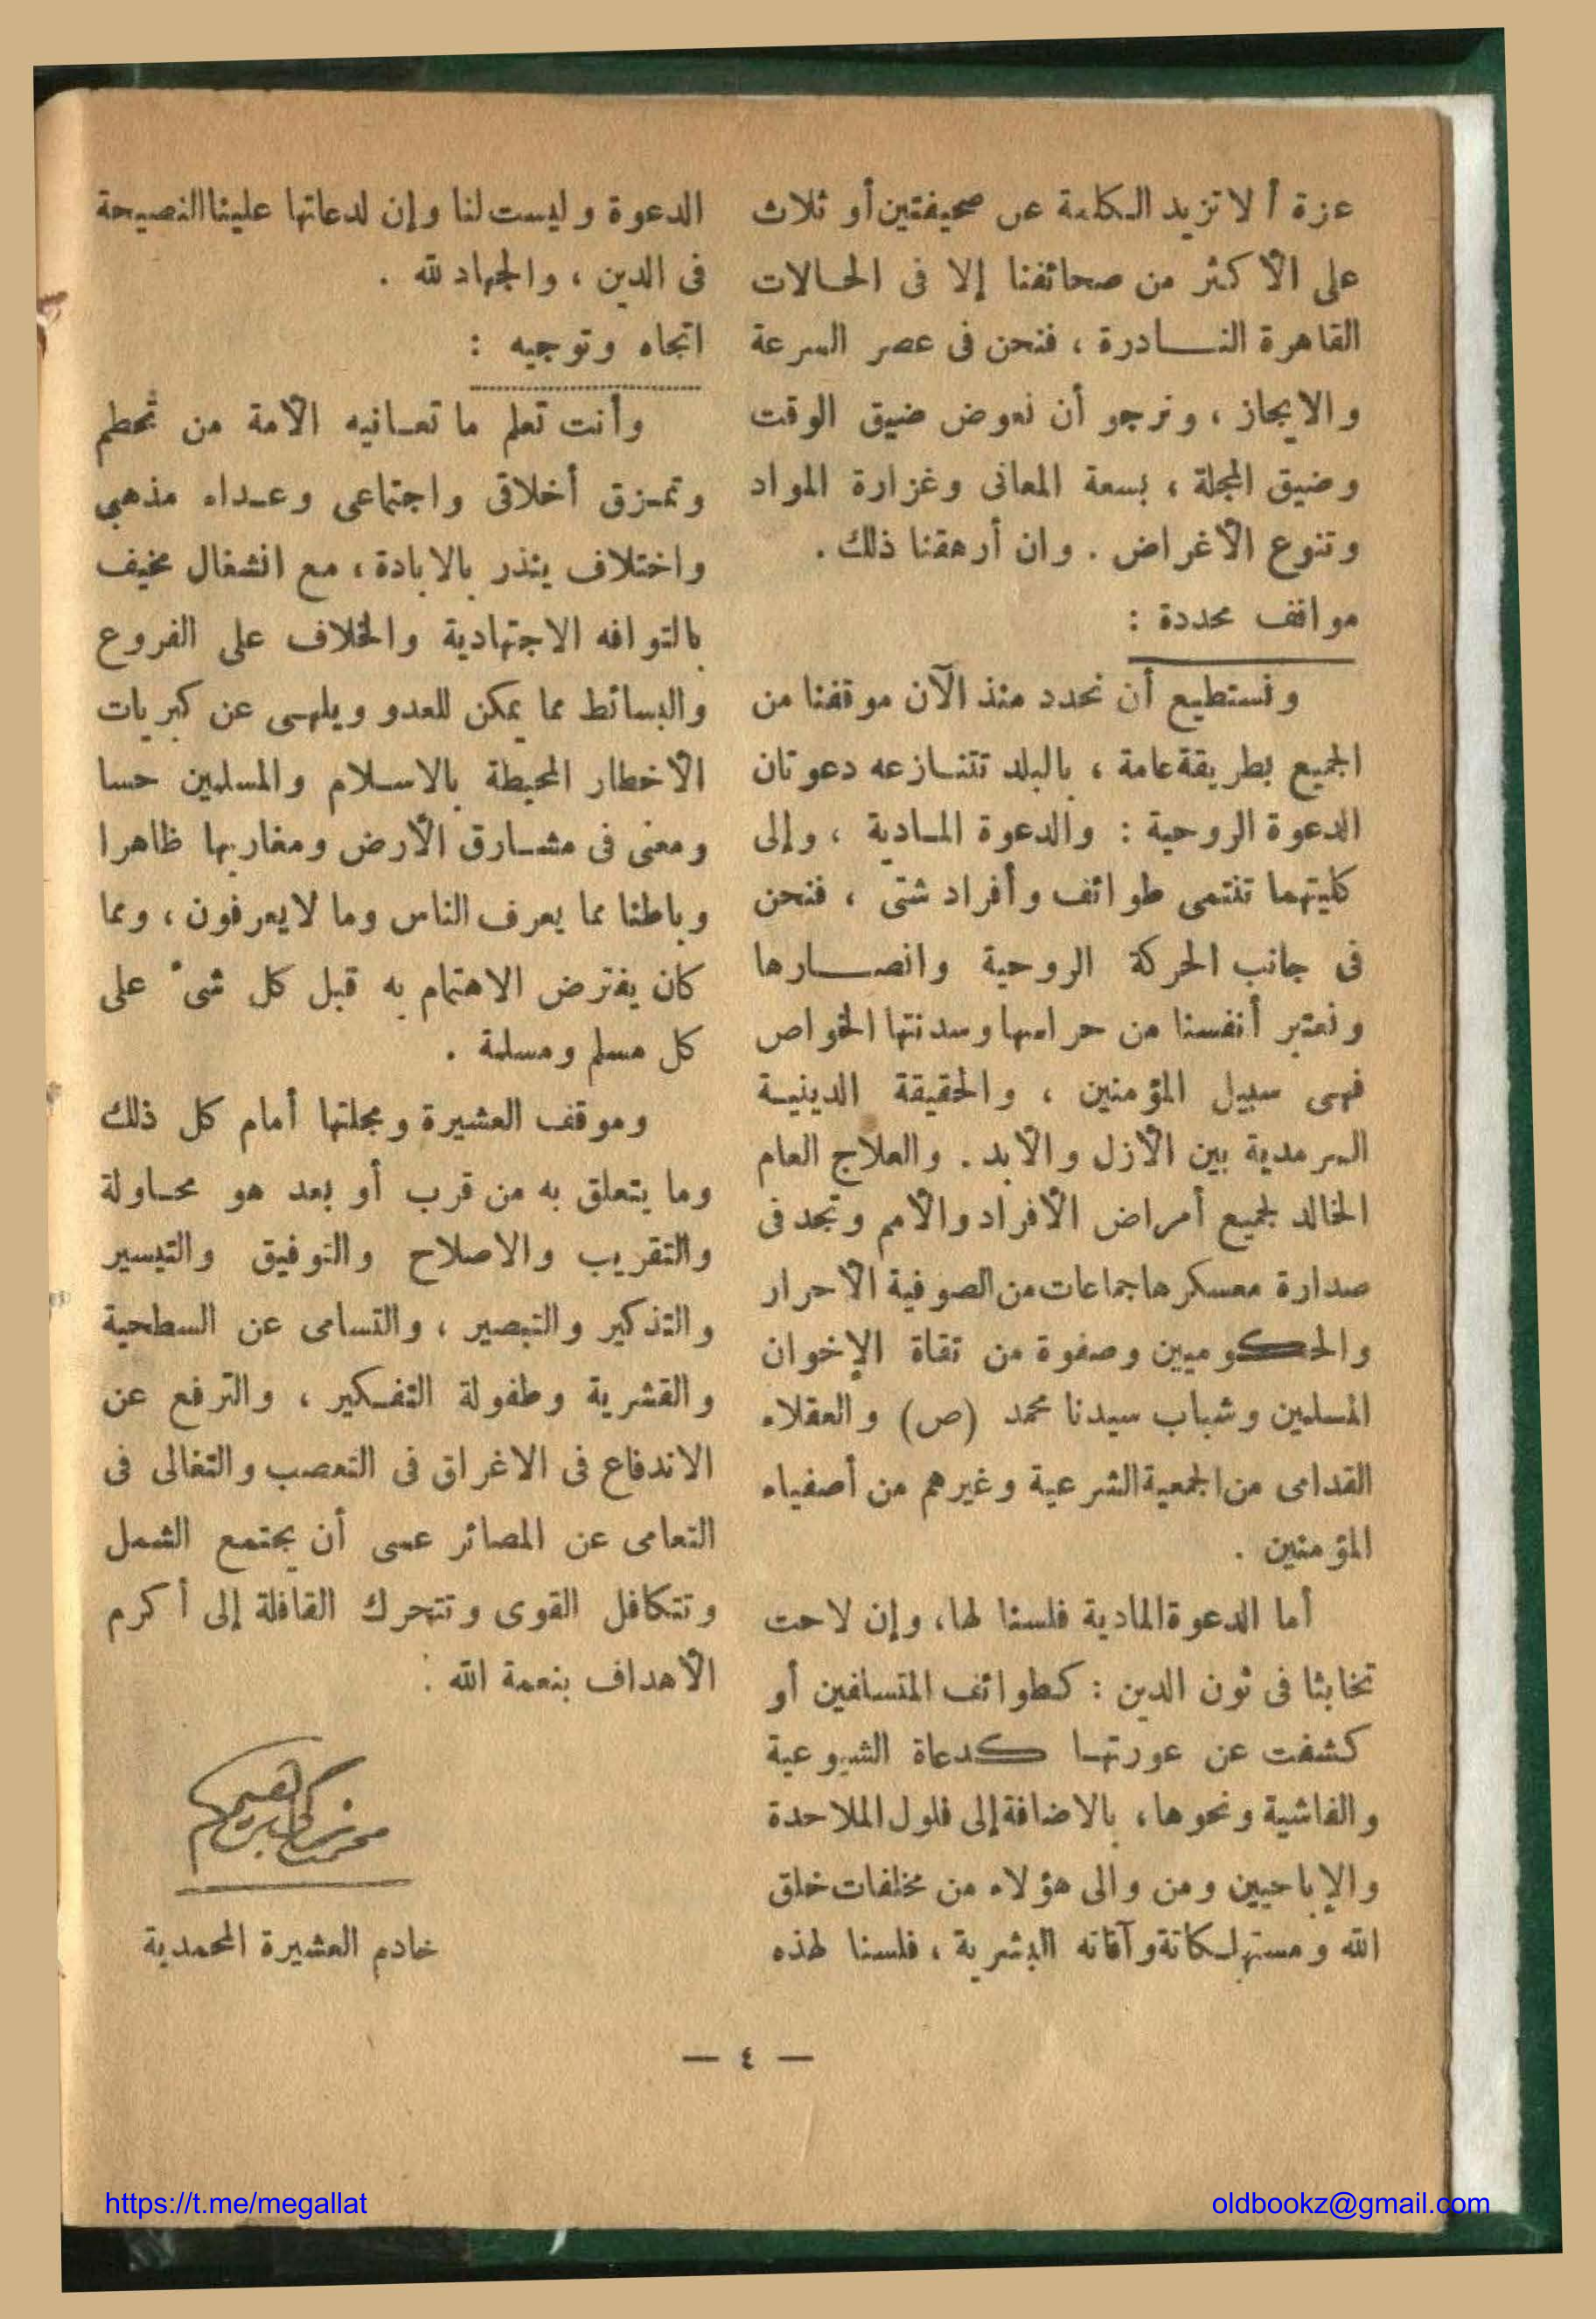 عزة ألا تزيد الكلمة عن صحيفتين أو ثلاث
على الأكثر من صحائفنا إلا فى الحالات
القاهرة النادرة ، فنحن فى عصر السرعة
والايجاز ، ونرجو أن نعوض ضيق الوقت
وضيق المجلة ، بسعة المعانى وغزارة المواد
وتنوع الأغراض . وان أرهقنا ذلك .
مواقف محددة :
ونستطيع أن نحدد منذ الآن موقفنا من
الجميع بطريقة عامة ، بالبلد تتنازعه دعوتان
الدعوة الروحية : والدعوة المادية ، وإلى
كليتهما تنتمى طوائف وأفراد شتى ، فنحن
فى جانب الحركة الروحية وانصارها
ونعتبر أنفسنا من حراسها وسدنتها الخواص
فهى سبيل المؤمنين ، والحقيقة الدينية
السرمدية بين الأزل والأبد . والعلاج العام
الخالد لجميع أمراض الأفراد والأمم وتجد فى
صدارة معسكرها جماعات من الصوفية الأحرار
والحكوميين وصفوة من تقاة الإخوان
المسلمين وشباب سيدنا محمد (ص) والعقلاء
القدامى من الجمعية الشرعية وغيرهم من أصفياء
المؤمنين .
أما الدعوة المادية فلسنا لها، وإن لاحت
تخابثا فى ثون الدين : كطوائف المتسلفين أو
كشفت عن عورتها كدعاة الشيوعية
والفاشية ونحوها، بالاضافة إلى فلول الملاحدة
والإباحيين ومن والى هؤلاء من مخلفات خلق
الله ومستهلكاتة وآفاته البشرية ، فلسنا لهذه
الدعوة وليست لنا وإن لدعاتها علينا النصيحة
فى الدين ، والجهاد لله .
اتجاه وتوجيه :
وأنت تعلم ما تعانيه الأمة من تحطم
وتمزق أخلاقى واجتماعى وعداء مذهبى
واختلاف ينذر بالابادة ، مع انشغال مخيف
بالتوافه الاجتهادية والخلاف على الفروع
والبسائط مما يمكن للعدو ويلهى عن كبريات
الأخطار المحيطة بالاسلام والمسلمين حسا
ومعنى فى مشارق الأرض ومغاربها ظاهرا
وباطنا مما يعرف الناس وما لا يعرفون ، ومما
كان يفترض الاهتمام به قبل كل شىء على
كل مسلم ومسلمة .
وموقف العشيرة ومجلتها أمام كل ذلك
وما يتعلق به من قرب أو بعد هو محاولة
والتقريب والاصلاح والتوفيق والتيسير
والتذكير والتبصير ، والتسامى عن السطحية
والقشرية وطفولة التفكير ، والترفع عن
الاندفاع فى الاغراق فى التعصب والتغالى فى
التعامى عن المصائر عسى أن يجتمع الشمل
وتتكافل القوى وتتحرك القافلة إلى أكرم
الأهداف بنعمة الله .
محمد زكى ابراهيم
خادم العشيرة المحمدية
— ٤ —
https://t.me/megallat
oldbookz@gmail.com